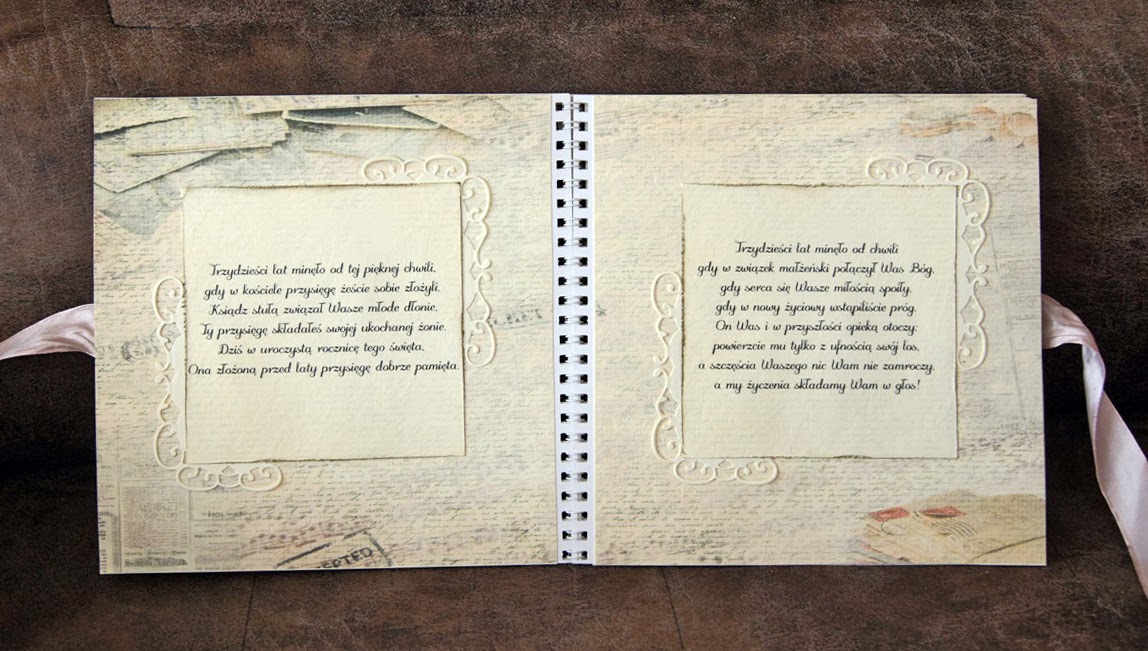 Trzydzieści lat minęło od tej pięknej chwili,
gdy w kościele przysięgę żeście sobie złożyli.
Ksiądz stułą związał Wasze młode dłonie,
Ty przysięgę składałeś swojej ukochanej żonie.
Dziś w uroczystą rocznicę tego święta,
Ona złożoną przed laty przysięgę dobrze pamięta.
Trzydzieści lat minęło od chwili
gdy w związek małżeński połączył Was Bóg,
gdy serca się Wasze miłością spoiły,
gdy w nowy życiowy wstąpiliście próg.
On Was i w przyszłości opieką otoczy;
powierzcie mu tylko z ufnością swój los,
a szczęścia Waszego nic Wam nie zamroczy,
a my życzenia składamy Wam w głos!